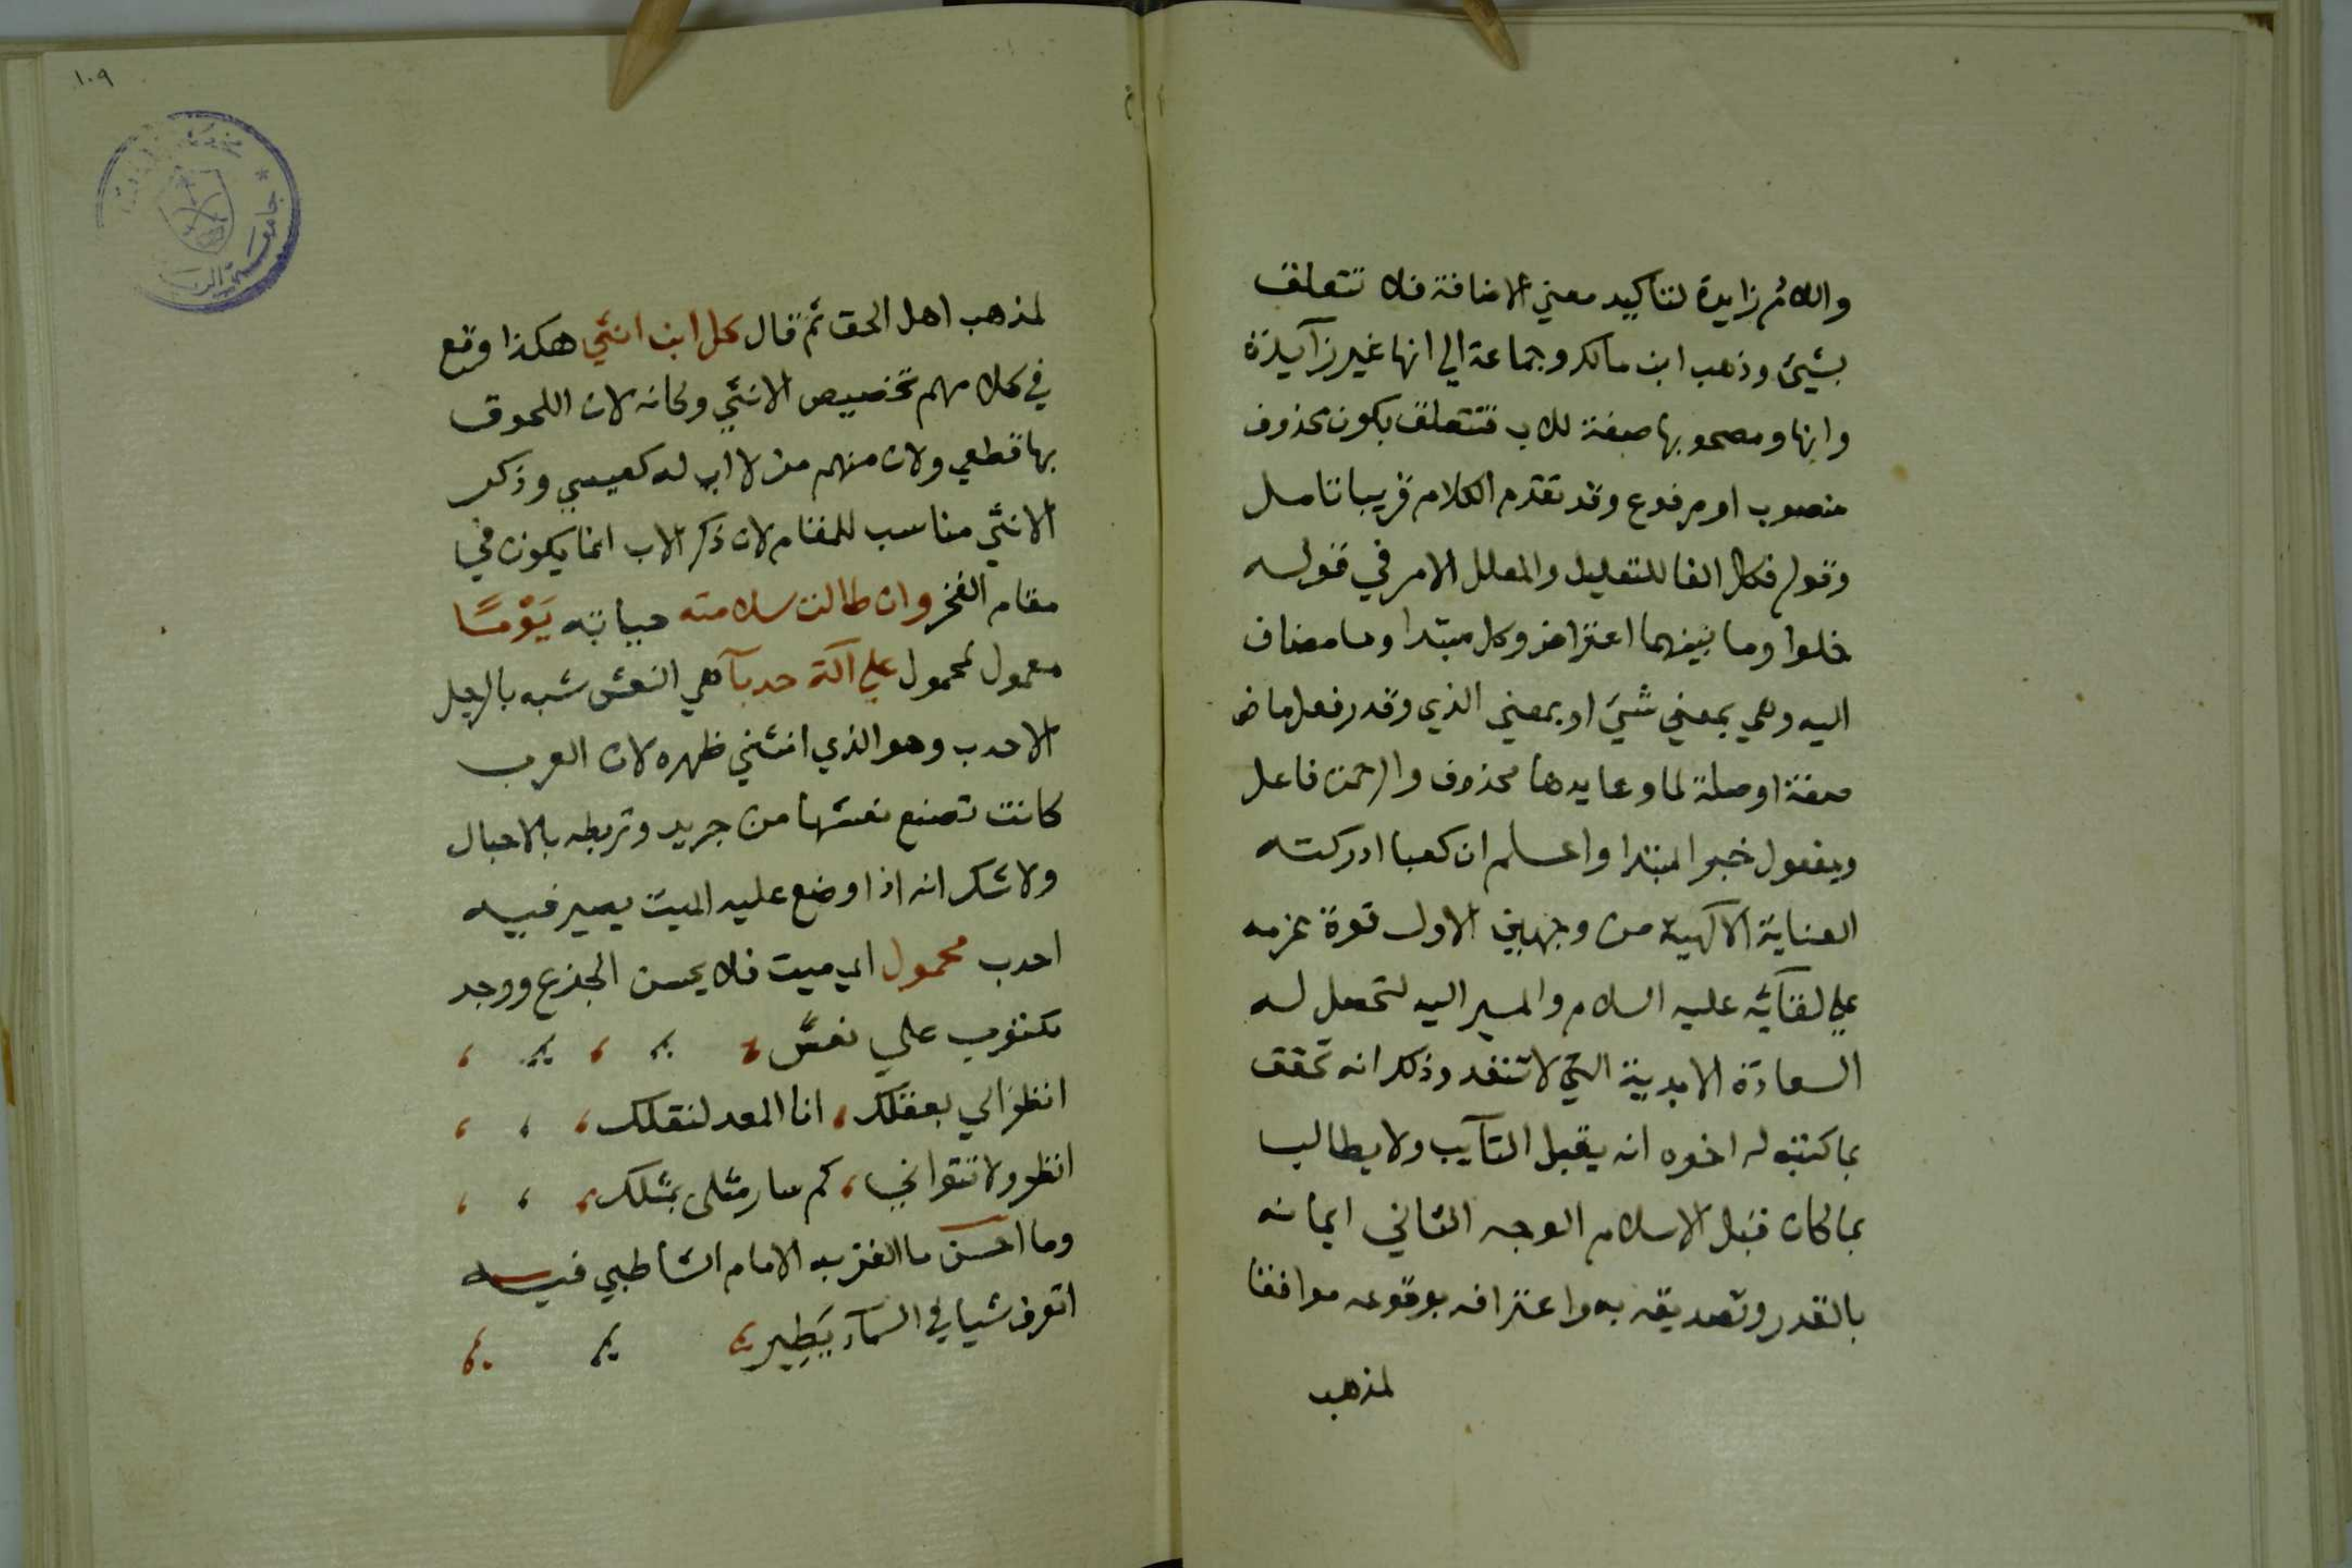 واللام زايدة لتاكيد معني الاضافة فلا تتعلق
بشيئ وذهب ابن مالك وجماعة الي انها غير زآيدة
وانها ومصحوبها صفة للاب فتتعلق بكون محذوف
منصوب او مرفوع وقد تقدم الكلام قريبا تامل
وقوله فكل الفا للتعليل والمعلل الامر في قوله
خلوا وما بينهما اعتراض وكل مبتدا وما مضاف
اليه وهي بمعني شيئ او بمعني الذي وقدر فعل ماض
صفة او صلة لما وعايدها محذوف والرحمن فاعل
ومفعول خبر المبتدا واعلم ان كعبا ادركته
العناية الآلهية من وجهين الاول قوة عزمه
علي لقآئه عليه السلام والمسير اليه لتحصل له
السعادة الابدية التي لا تنفد وذلك انه تحقق
بما كتبه له اخوه انه يقبل التآيب ولا يطالب
بما كان قبل الاسلام الوجه الثاني ايمانه
بالقدر وتصديقه به واعترافه بوقوعه موافقا
لمذهب
١٠٩
لمذهب اهل الحق ثم قال كل ابن انثي هكذا وقع
في كلامهم تخصيص الانثي وكانه لان اللحوق
بها قطعي ولان منهم من لا اب له كعيسي وذكر
الانثي مناسب للمقام لان ذكر الاب انما يكون في
مقام الفخر وان طالت سلامته حياته يَوْمًا
معمول لمحمول علي آلة حدبآ هي النعش شبه بالرجل
الاحدب وهو الذي انثني ظهره لان العرب
كانت تصنع نعشها من جريد وتربطه بالاحبال
ولا شك انه اذا وضع عليه الميت يصير فيه
احدب محمول اي ميت فلا يحسن الجذع ووجد
مكتوب علي نعش
انظر الي بعقلك، انا المعد لنقلك،
انظر ولا تتواني، كم سار مثلي بمثلك،
وما احسن ما الغز به الامام الشاطبي فيه
اتعرف شيا في السمآء يَطِير